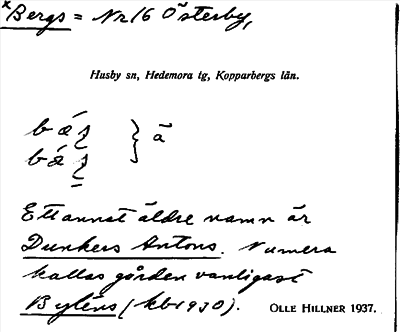 ×Bergs = Nr 16 Österby,
Husby sn, Hedemora tg, Kopparbergs län.
ā
Ett annat äldre namn är
Dunkers Antons. Numera
kallas gården vanligast
Byléns (kb 1930). OLLE HILLNER 1937.